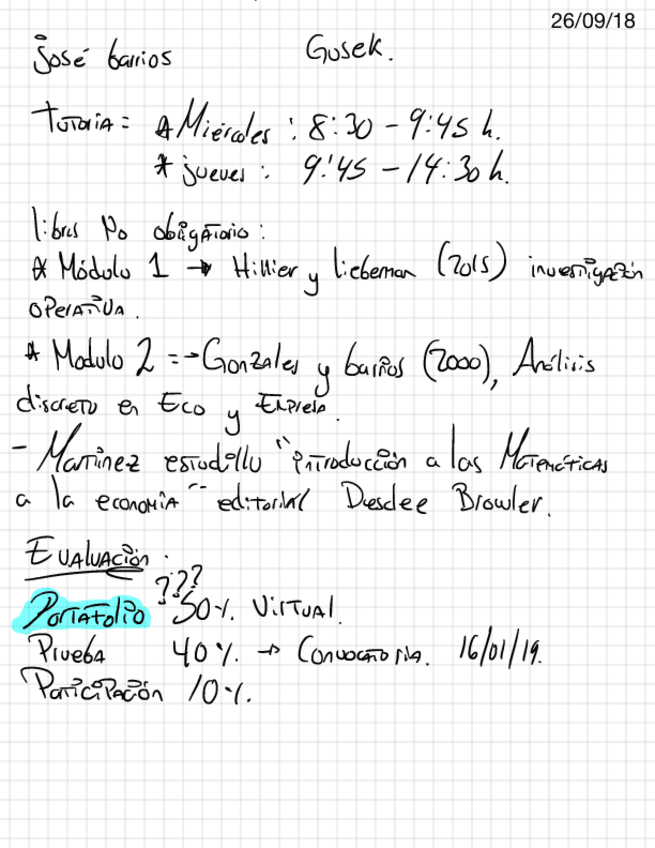 26/09/18
José barrios Gusek.
Tutoria = * Miércoles : 8:30 - 9:45 h.
* jueves : 9:45 - 14:30 h.
libros No obligatorio :
* Módulo 1 → Hillier y Lieberman (2015) investigación
operativa.
* Modulo 2 = → Gonzales y barrios (2000), Análisis
discreto en Eco y Empresa.
- Martinez estudillo "introducción a las Matemáticas
a la economia" editorial Desclee Browler.
Evaluación :
???
Portafolio 50% Virtual.
Prueba 40% → Convocatoria. 16/01/19.
Participación 10%.